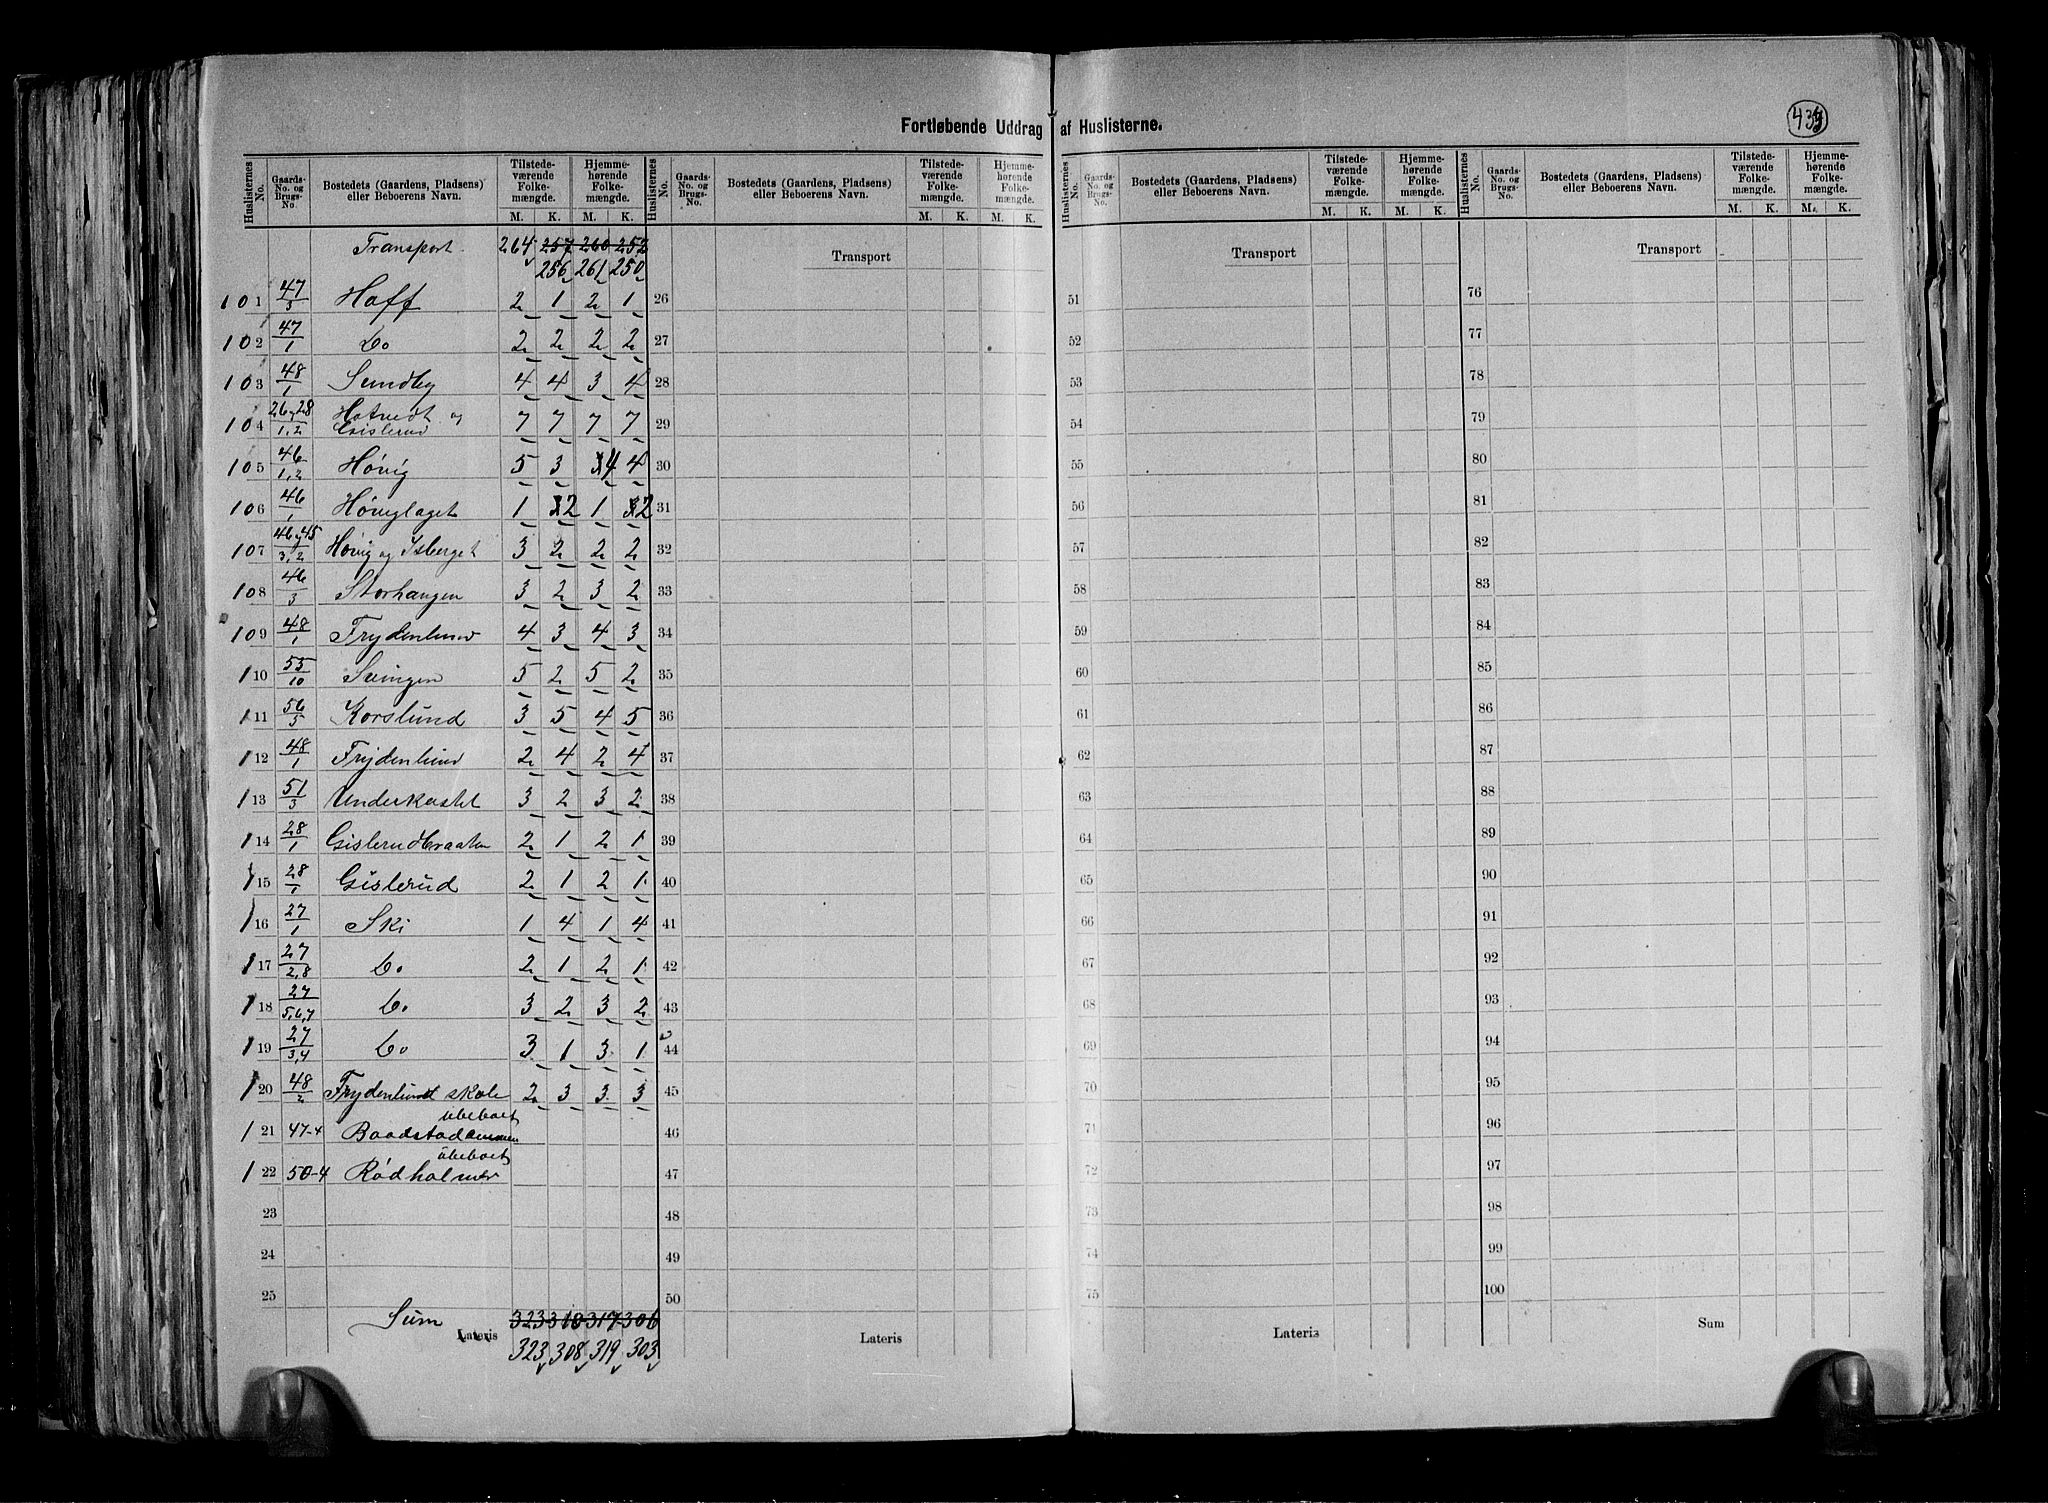 Fortløbende Uddrag af Huslisterne.
435
Huslisternes No. Gaards-No. og Brugs-No. Bostedets (Gaardens, Pladsens) eller Beboerens Navn. Tilstedeværende Folkemængde. M. K. Hjemmehørende Folkemængde. M. K.
Transport 264 257 260 252
256 261 250
101 47/3 Haff 2 1 2 1
102 47/1 Do 2 2 2 2
103 48/1 Sundby 4 4 3 4
104 26 og 28/1,2 Hotvedt og Gislerud 7 7 7 7
105 46/1,2 Høvig 5 3 4 4
106 46/1 Høviglaget 1 2 1 2
107 46 og 45/3,2 Høvig og Isberget 3 2 2 2
108 46/3 Storhaugen 3 2 3 2
109 48/1 Frydenlund 4 3 4 3
110 55/10 Svingen 5 2 5 2
111 56/5 Korslund 3 5 4 5
112 48/1 Frydenlund 2 4 2 4
113 51/3 Underkastet 3 2 3 2
114 28/1 Gislerudbraaten 2 1 2 1
115 28/1 Gislerud 2 1 2 1
116 27/1 Ski 1 4 1 4
117 27/2,8 Do 2 1 2 1
118 27/5,6,7 Do 3 2 3 2
119 27/3,4 Do 3 1 3 1
120 48/2 Frydenlund skole 2 3 3 3
ubeboet
121 47-4 Baadstad
ubeboet
122 50-4 Rødholmen
23
24
25
Sum Lateris 323 310 317 306
323 308 319 303
Huslisternes No. Gaards-No. og Brugs-No. Bostedets (Gaardens, Pladsens) eller Beboerens Navn. Tilstedeværende Folkemængde. M. K. Hjemmehørende Folkemængde. M. K.
Transport
26
27
28
29
30
31
32
33
34
35
36
37
38
39
40
41
42
43
44
45
46
47
48
49
50
Lateris
Huslisternes No. Gaards-No. og Brugs-No. Bostedets (Gaardens, Pladsens) eller Beboerens Navn. Tilstedeværende Folkemængde. M. K. Hjemmehørende Folkemængde. M. K.
Transport
51
52
53
54
55
56
57
58
59
60
61
62
63
64
65
66
67
68
69
70
71
72
73
74
75
Lateris
Huslisternes No. Gaards-No. og Brugs-No. Bostedets (Gaardens, Pladsens) eller Beboerens Navn. Tilstedeværende Folkemængde. M. K. Hjemmehørende Folkemængde. M. K.
Transport
76
77
78
79
80
81
82
83
84
85
86
87
88
89
90
91
92
93
94
95
96
97
98
99
100
Sum